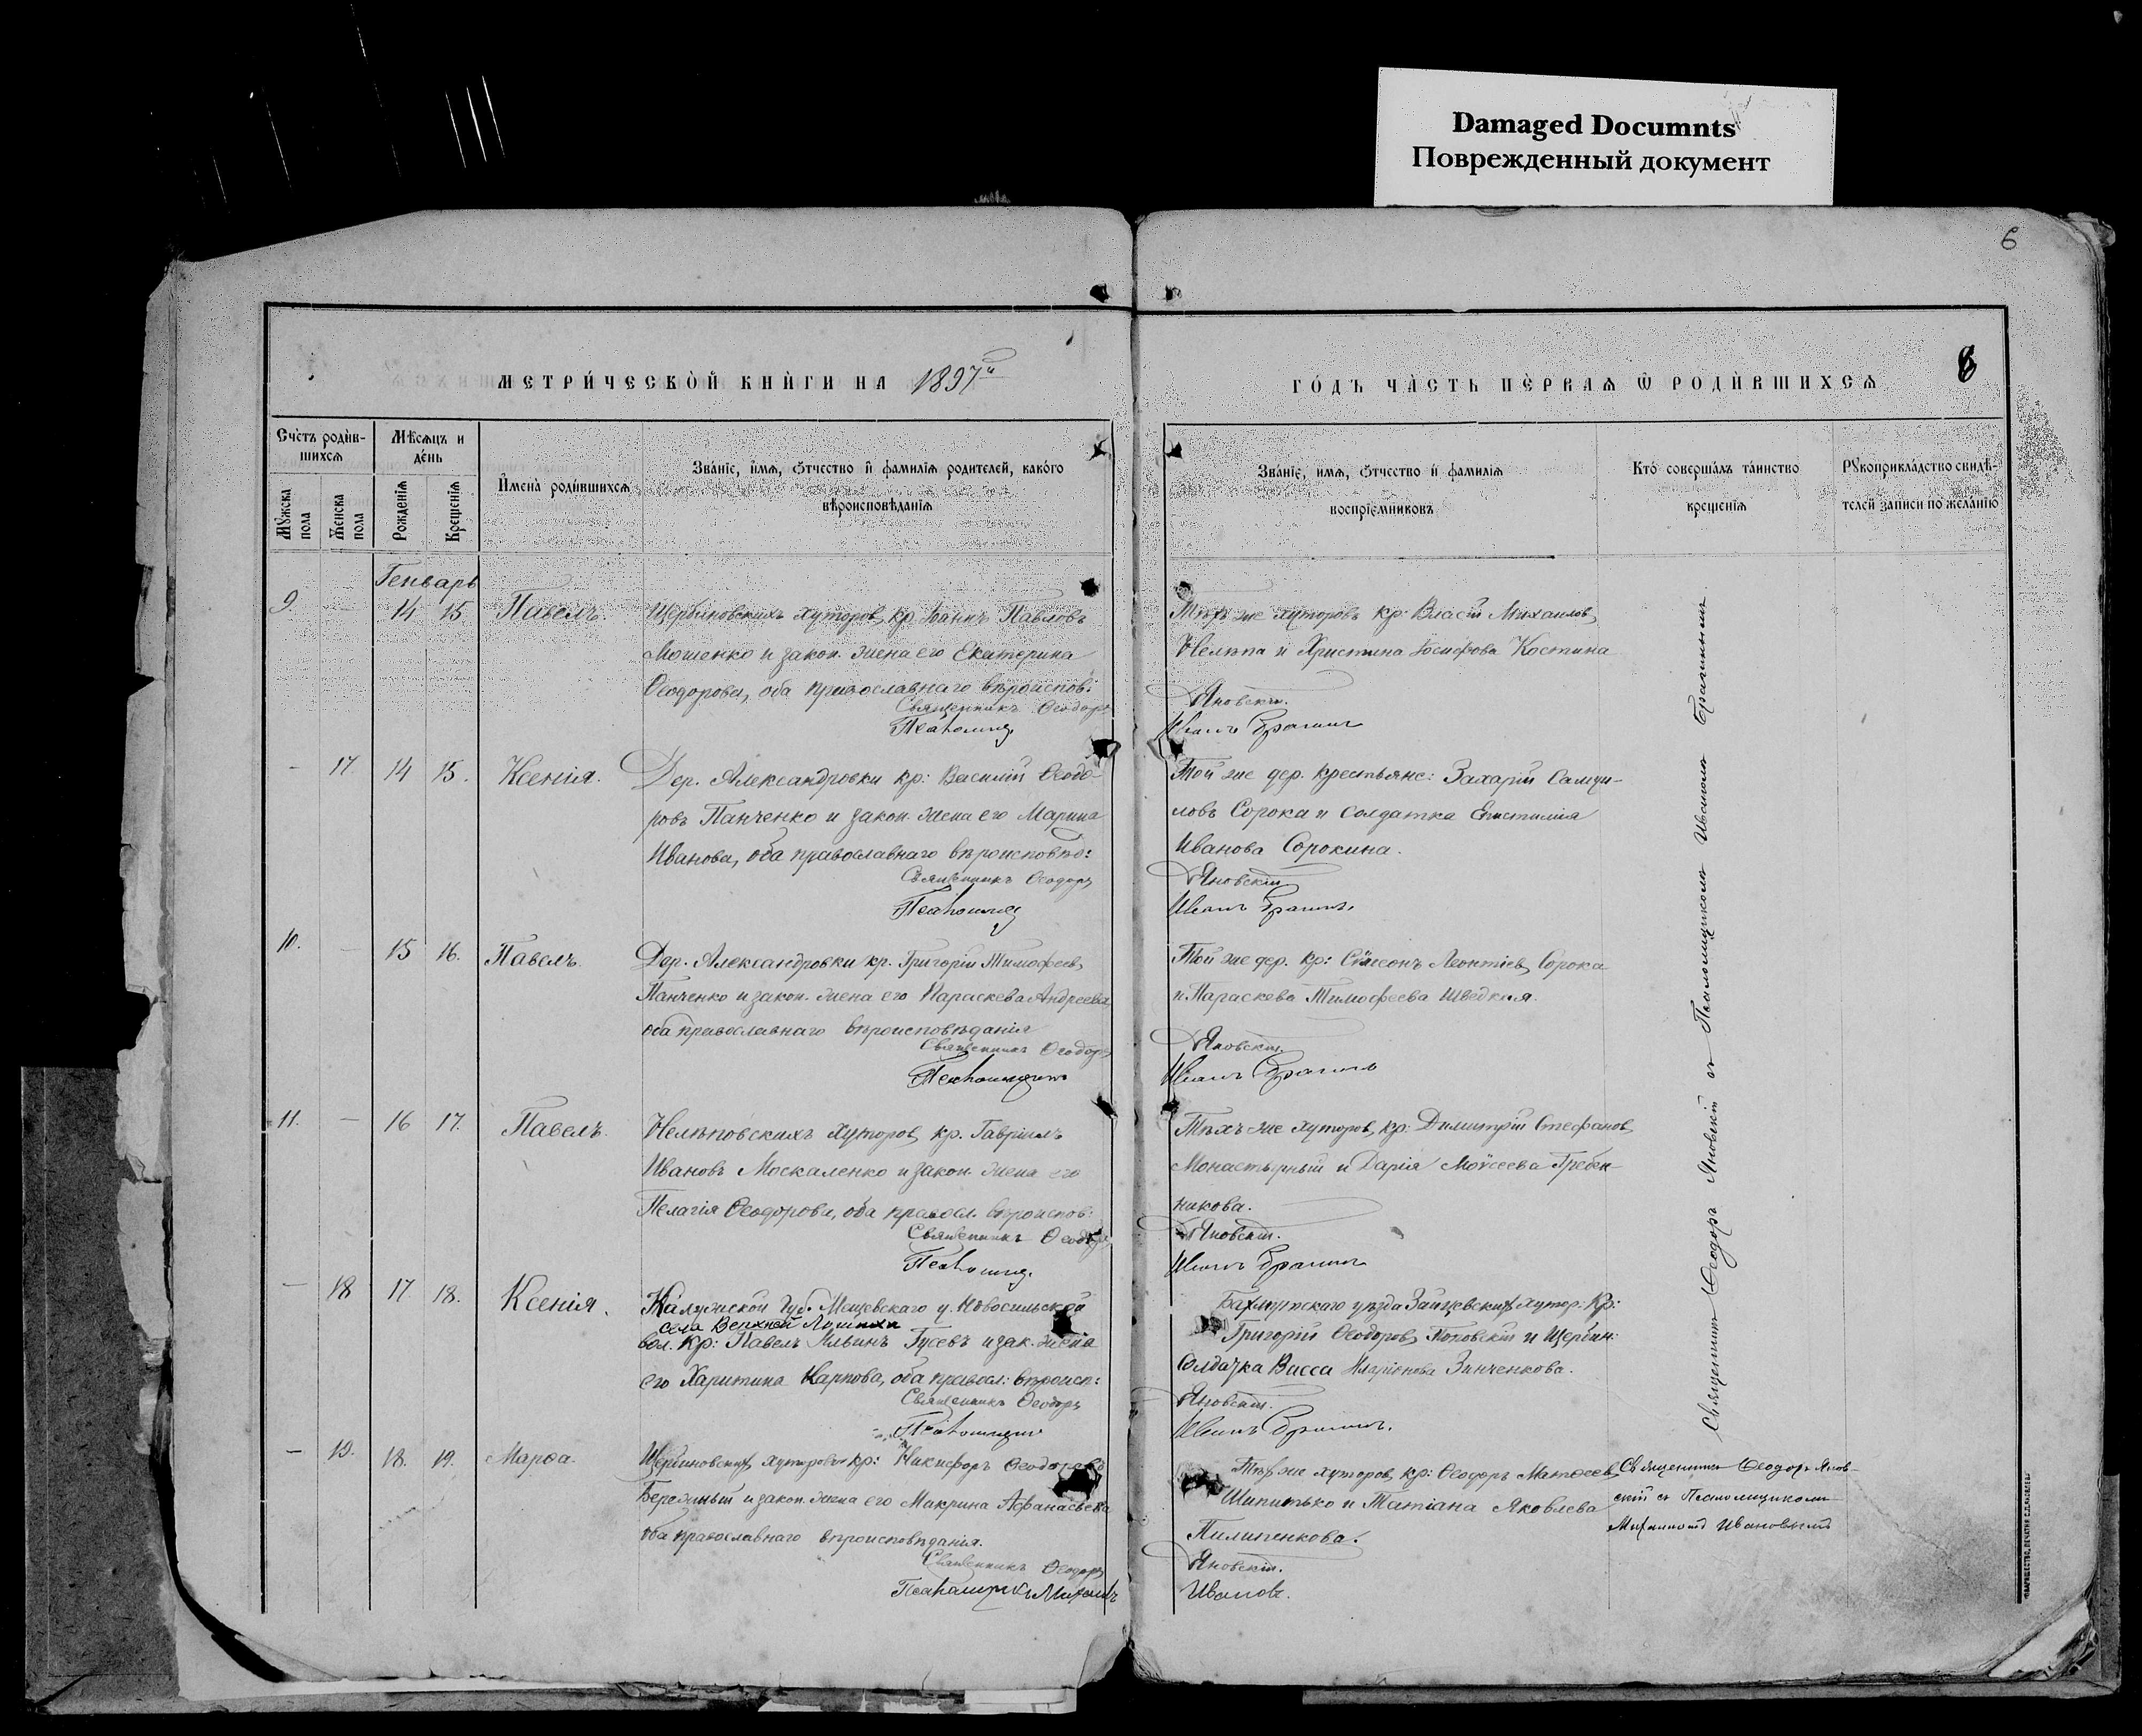 Damaged Documnts
Поврежденный документ
6
МЕТРИ́ЧЕСКОЙ КНИ́ГИ НА 1897й
ГО́ДЪ ЧА́СТЬ ПЕ́РВАѦ Ѡ РОДИ́ВШИХСѦ
6
Сче́тъ роди́в-
шихсѧ
Мѣ́сѧцъ и
де́нь
И҆мена̀ роди́вшихсѧ
Зва́нїе, и҆́мѧ, ѻ҆́тчество и҆ фами́лїѧ роди́телей, како́го
вѣроисповѣ́данїѧ
Мꙋ́жска
пола
Же́нска
пола
Рожде́нїѧ
Креще́нїѧ
Зва́нїе, и҆мѧ, ѻ҆́тчество и҆ фами́лїѧ
воспрїе́мниковъ
Кто̀ соверша́лъ та́инство
креще́нїѧ
Рꙋкоприкла́дство свидѣ́-
телей за́писи по жела́нїю
Генварь
9. — 14 15 Павелъ.
Щербиновскихъ хуторовъ, кр. Іоаннъ Павловъ
Мошенко и закон. жена его Екатерина
Ѳеодорова, оба православнаго вѣроиспов:
Священникъ Ѳеодоръ
Псаломщ.
Тѣхъ же хуторовъ кр: Власій Михаиловъ
Нелѣпа и Христина Іосифова Костина
Яновскій.
Иванъ Брагинъ
— 17. 14 15. Ксенія.
Дер. Александровки кр: Василій Ѳеодо-
ровъ Панченко и закон. жена его Марина
Иванова, оба православнаго вѣроисповѣд:
Священникъ Ѳеодоръ
Псаломщ
Той же дер. крестьяне: Захарій Самуи-
ловъ Сорока и солдатка Епистимія
Иванова Сорокина.
Яновскій
Иванъ Брагинъ.
10. — 15 16. Павелъ.
Дер. Александровки кр. Григорій Тимофеевъ
Панченко и закон. жена его Параскева Андреева
оба православнаго вѣроисповѣданія
Священникъ Ѳеодоръ
Псаломщикъ
Той же дер. кр: Сѵмеонъ Леонтіевъ Сорока
и Параскева Тимофеева Шведкая.
Яновскій.
Иванъ Брагинъ
11. — 16 17. Павелъ.
Нелѣповскихъ хуторовъ кр. Гавріилъ
Ивановъ Москаленко и закон. жена его
Пелагія Ѳеодорова, оба правосл. вѣроиспов:
Священникъ Ѳеодоръ
Псаломщ.
Тѣхъ же хуторовъ, кр: Димитрій Стефановъ
Монастырный и Дарія Моѵсеева Гребен-
никова.
Яновскій.
Иванъ Брагинъ
— 18 17. 18. Ксенія.
Калужской Губ. Мещевскаго у. Новосильской
села Верхней
вол. Кр: Павелъ Ильинъ Гусевъ и зак. жена
его Харитина Карпова, оба правосл: вѣроисп:
Священникъ Ѳеодоръ
Псаломщикъ
Бахмутскаго уѣзда Зайцевскихъ хутор: Кр:
Григорій Ѳеодоровъ и Щербин:
Солдатка Васса Иларіонова Зинченкова.
Яновскій.
Иванъ Брагинъ.
— 19. 18. 19. Марѳа.
Щербиновскихъ хуторовъ кр: Никифоръ Ѳеодоровъ
Бережный и закон. жена его Макрина Афанасьева
оба православнаго вѣроисповѣданія.
Священникъ Ѳеодоръ
Псаломщикъ Михаилъ
Тѣхъ же хуторовъ, кр: Ѳеодоръ Матѳеевъ
Шипитько и Татіана Яковлева
Пилипенкова.
Яновскій.
Ивановъ.
Священникъ Ѳеодоръ Яновскій съ Псаломщикомъ Иваномъ Брагинымъ
Священникъ Ѳеодоръ Янов-
скій съ Псаломщикомъ
Михаиломъ Ивановымъ